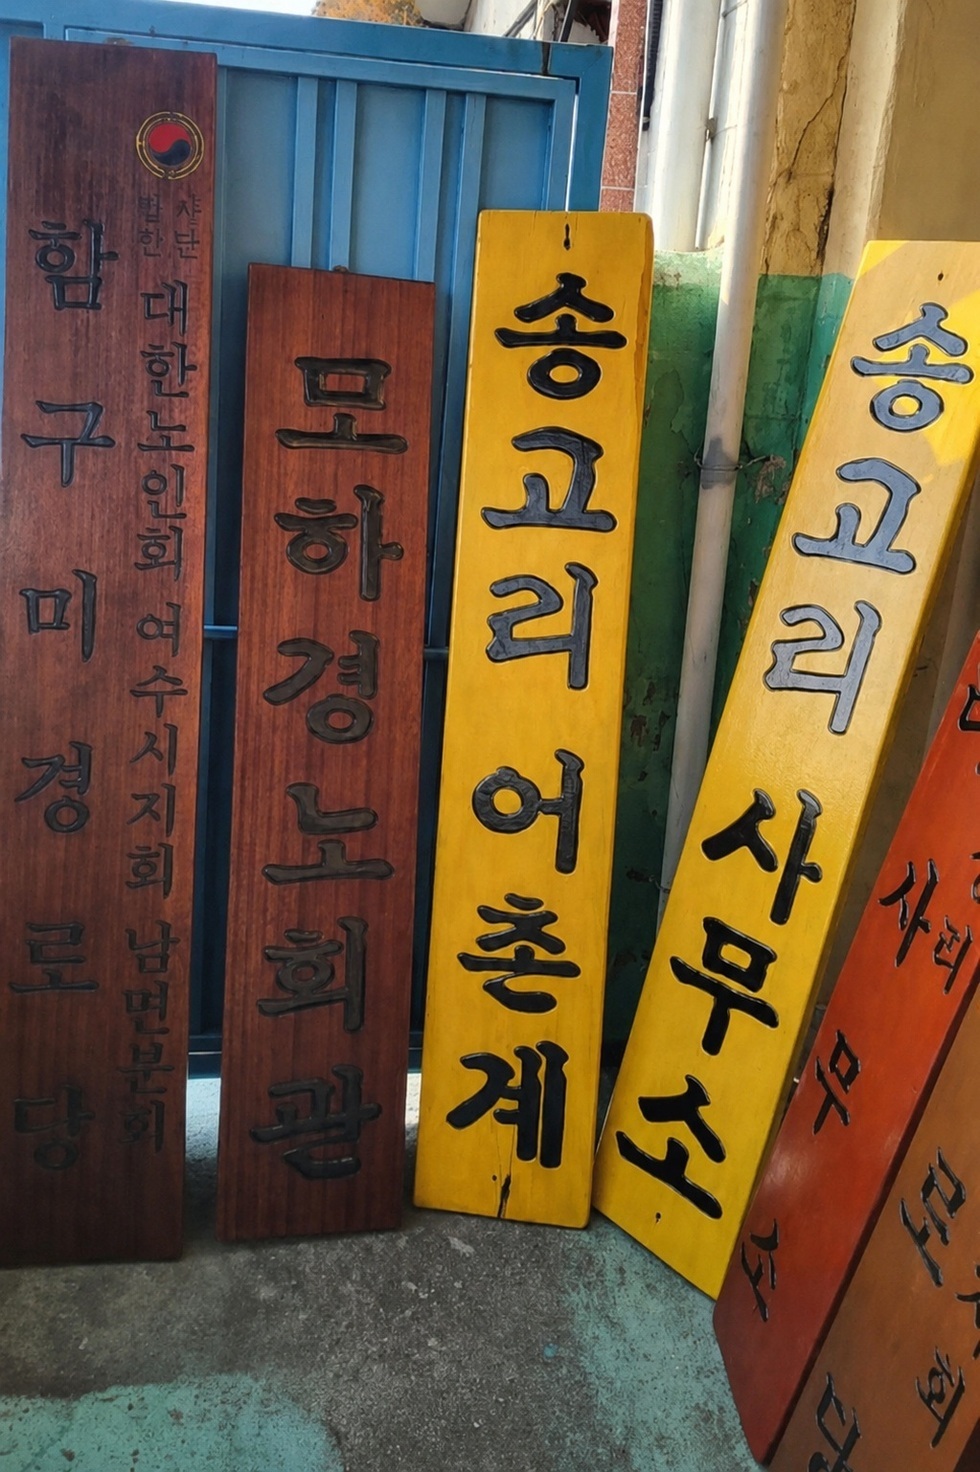 함구미경로당
대한노인회 여수시지회 남면분회
모하경노회관
송고리 어촌계
송고리 사무소
사무소